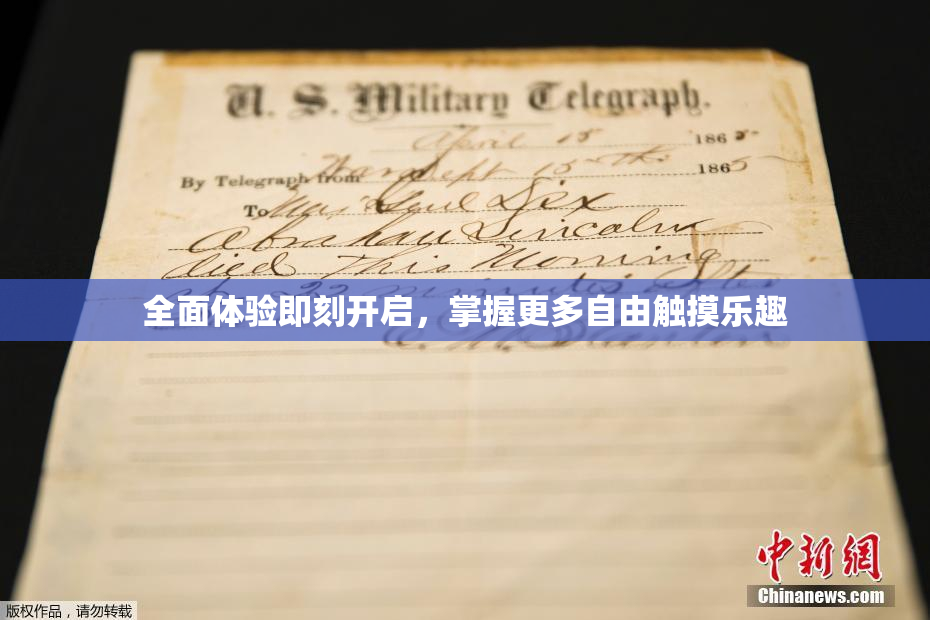 U. S. Military Telegraph.
April 15 1865
By Telegraph from War Dept 15th 1865
To Maj Genl Dix
Abraham Lincoln
died This Morning
at 22 minutes after
全面体验即刻开启，掌握更多自由触摸乐趣
E. M. Stanton
中新网
Chinanews.com
版权作品，请勿转载